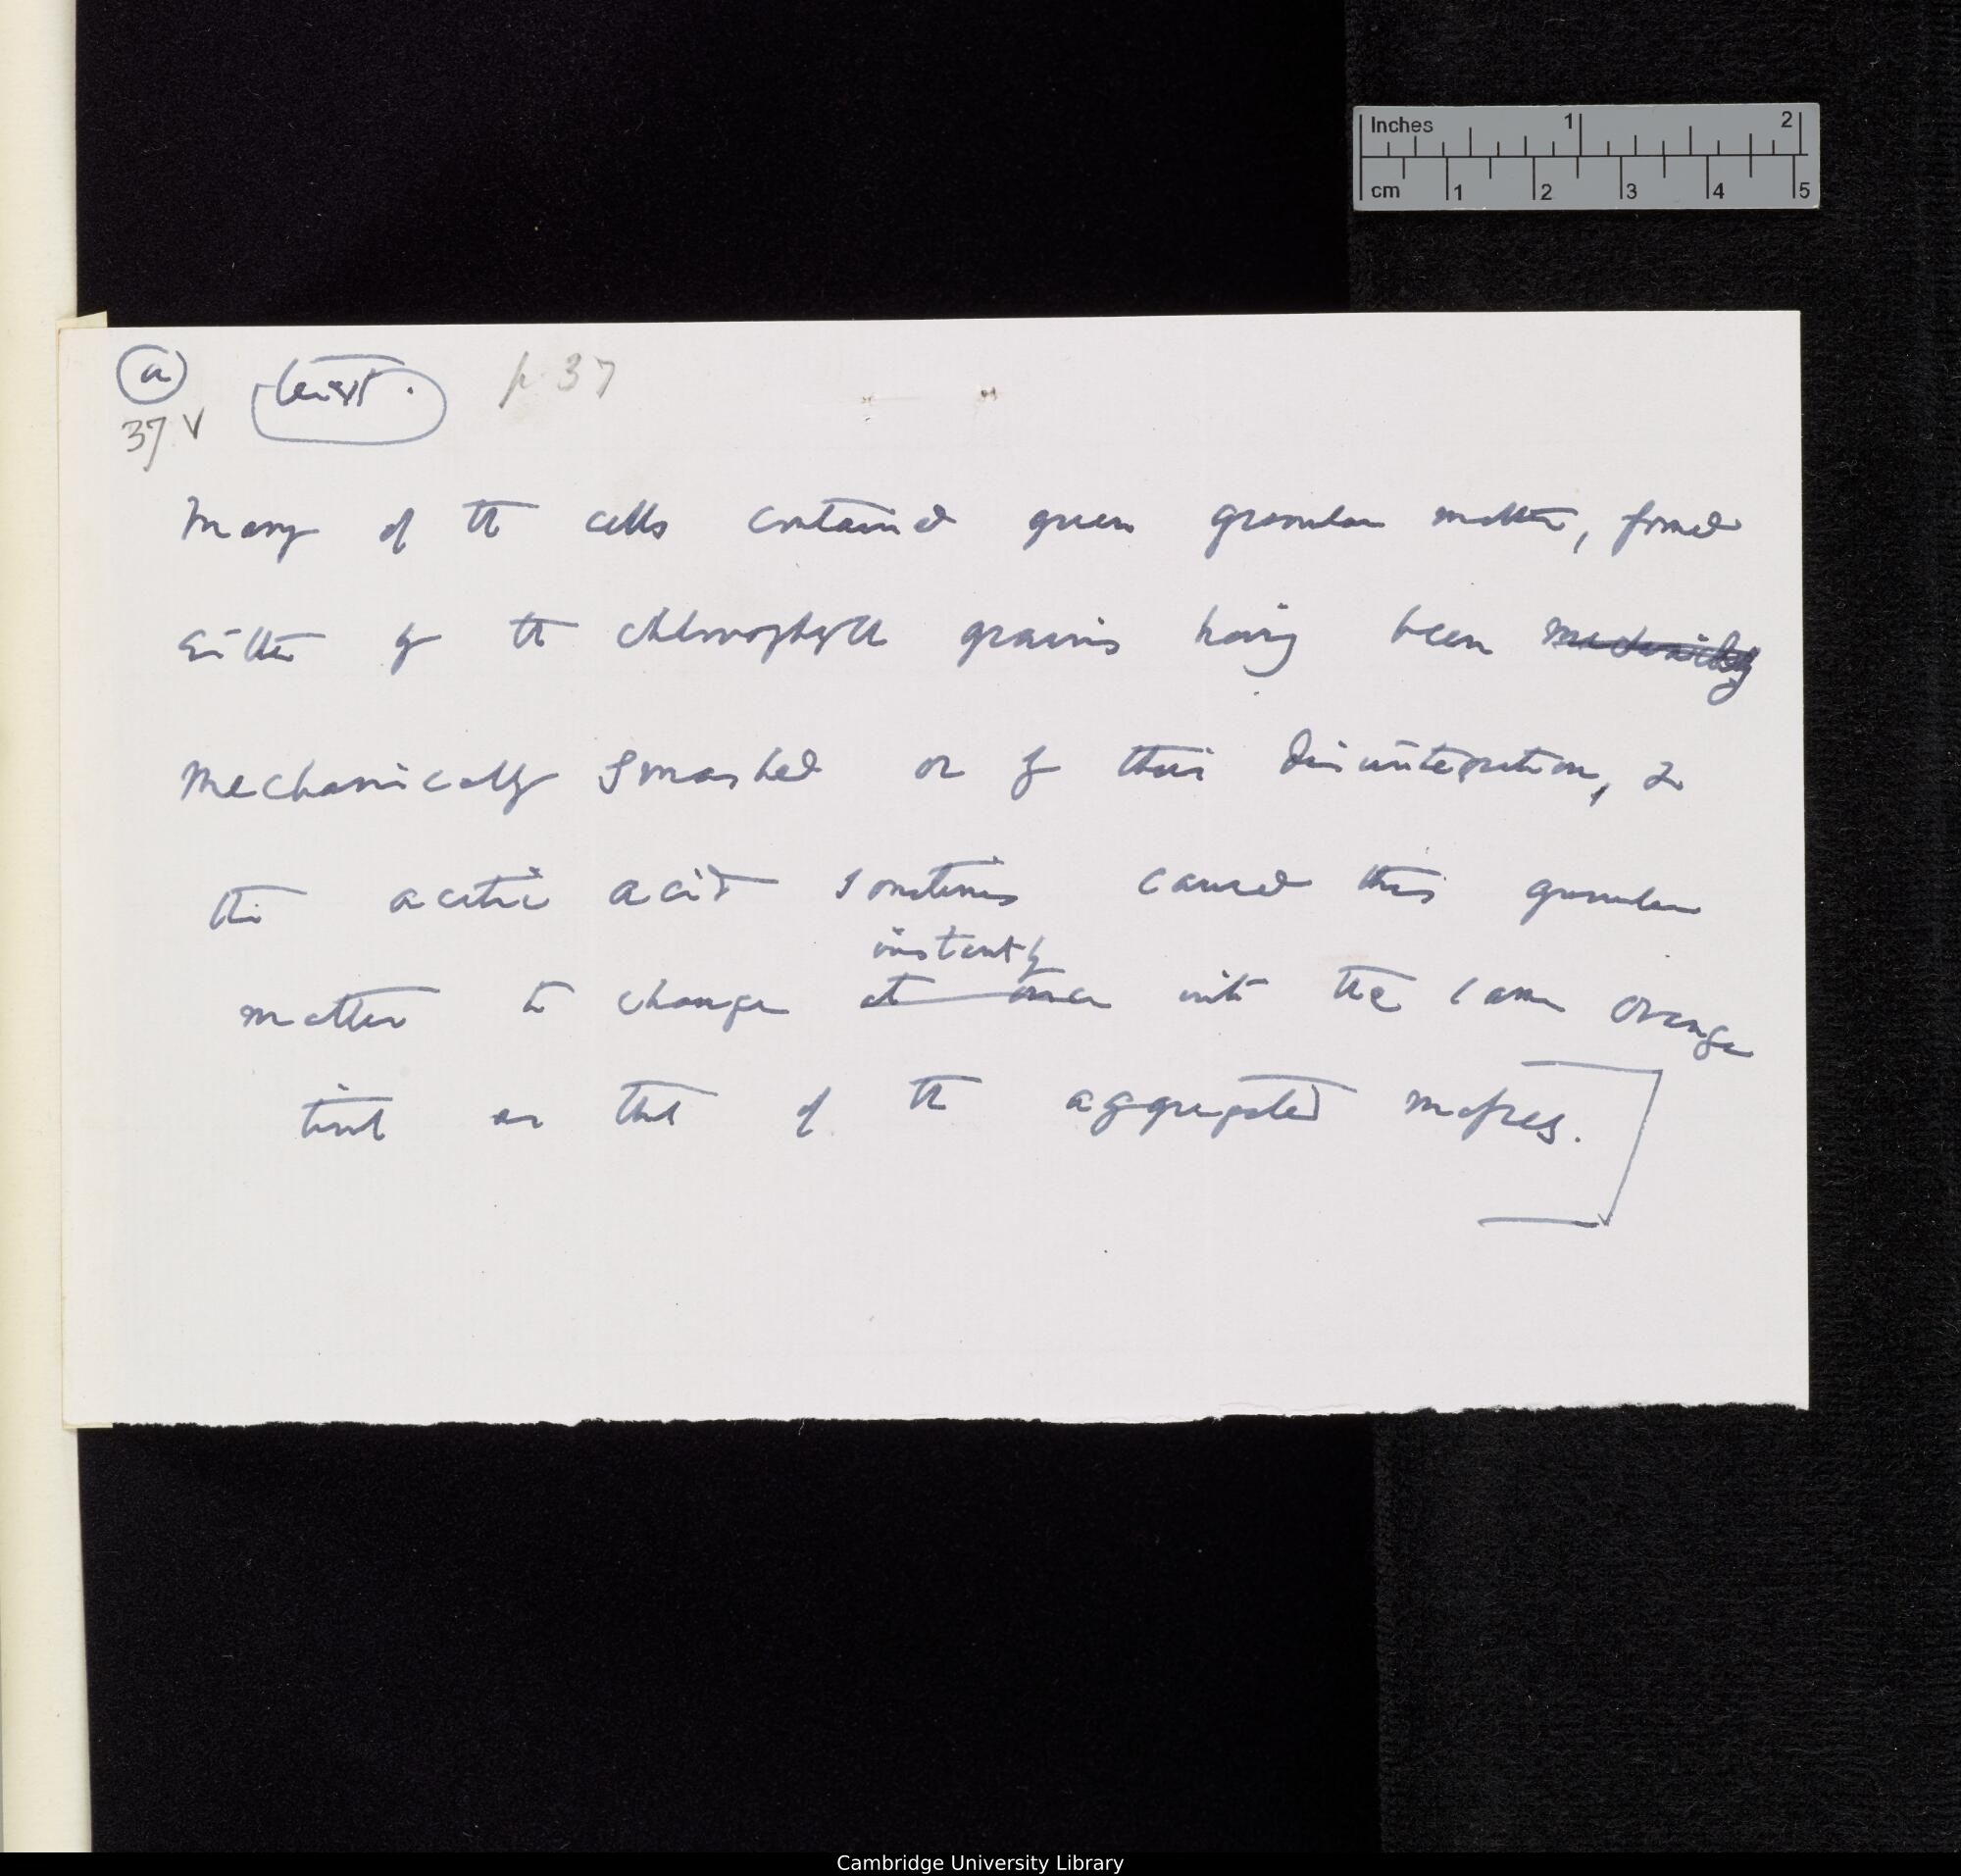 Inches 1 2
cm 1 2 3 4 5
(a) (text.) p. 37
37 v
Many of the cells contained green granular matter, formed
either by the chlorophyll grains having been mechanically
mechanically smashed or by their disintegration, &
the acetic acid sometimes caused this granular
instantly
matter to change at once into the same orange
tint as that of the aggregated masses.
Cambridge University Library